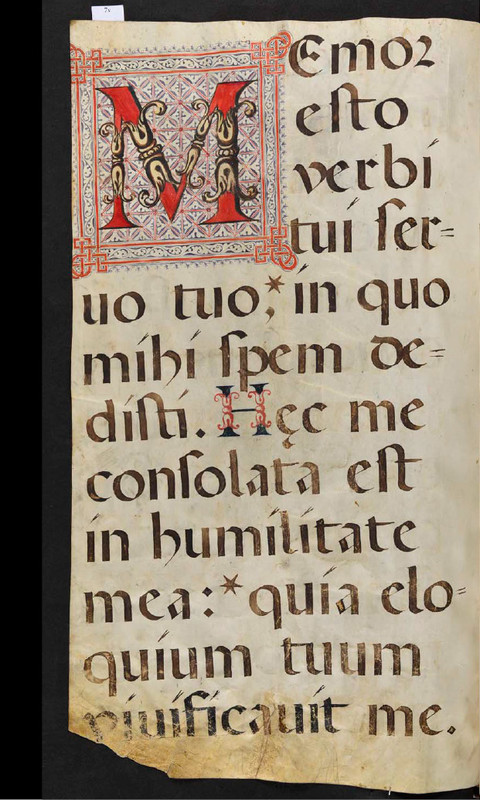 MEmor
eſto
verbi
tuí ſer=
uo tuo;* ín quo
míhí ſpem de=
dıſtí. Hęc me
conſolata eſt
ín humílítate
mea:* quía elo=
quíum tuum
viuíficauít me.